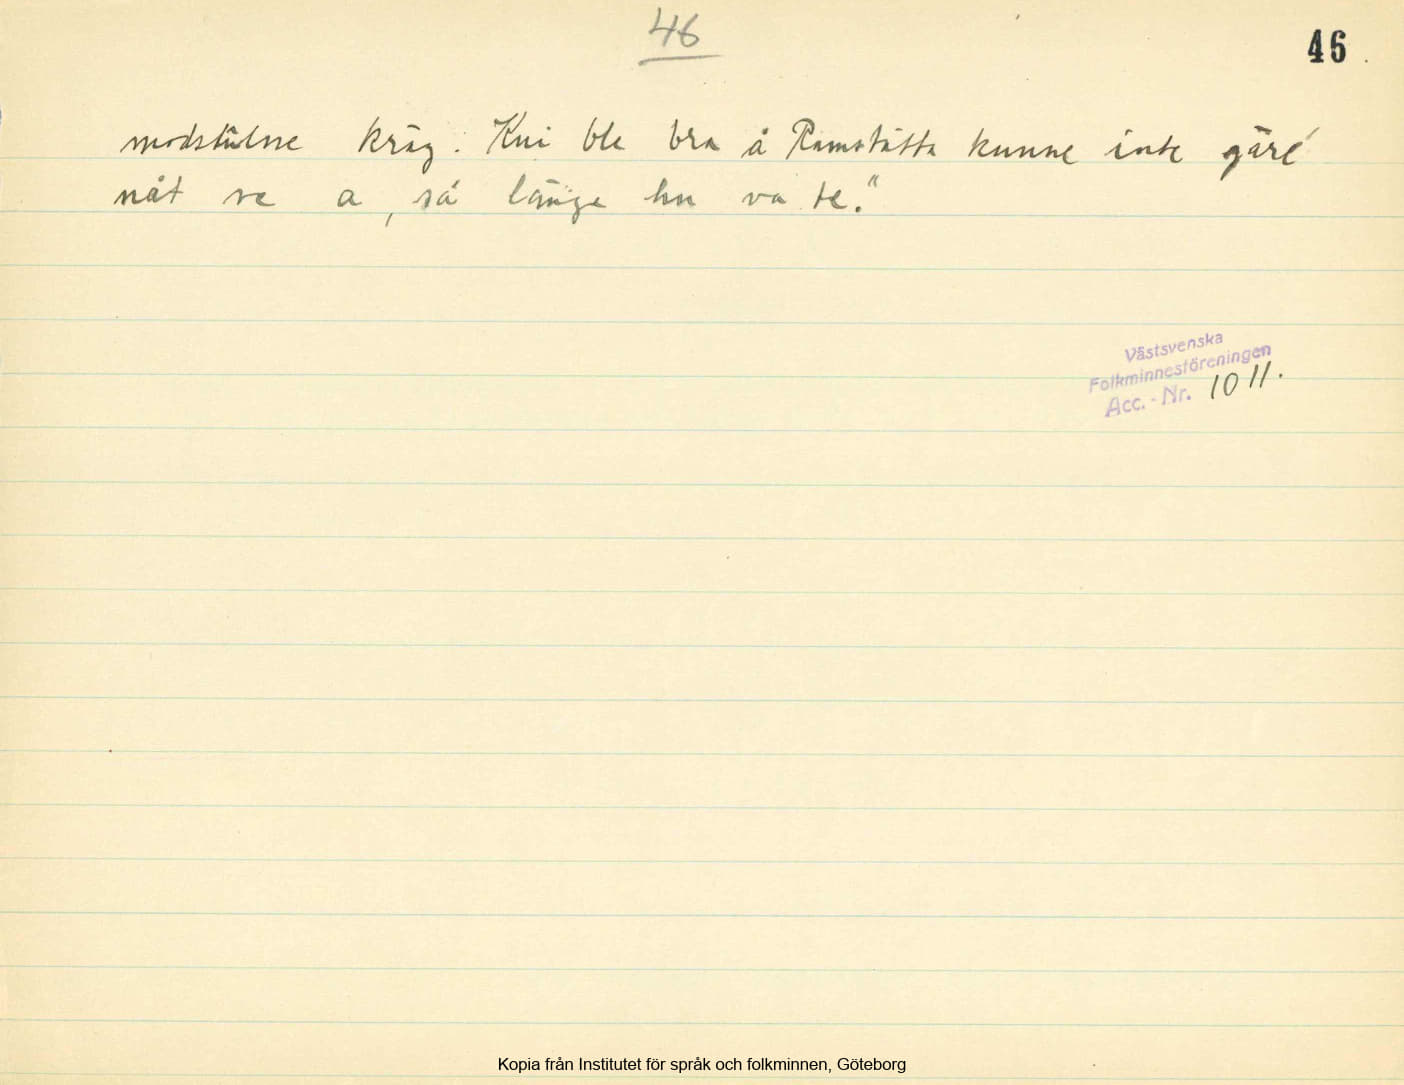 46
46
modstulne kräg. Kui ble bra å Ramstätta kunne inte gäre
nåt ve a, så länge hu va te."
Västsvenska
Folkminnesföreningen
Acc.-Nr. 1011.
Kopia från Institutet för språk och folkminnen, Göteborg